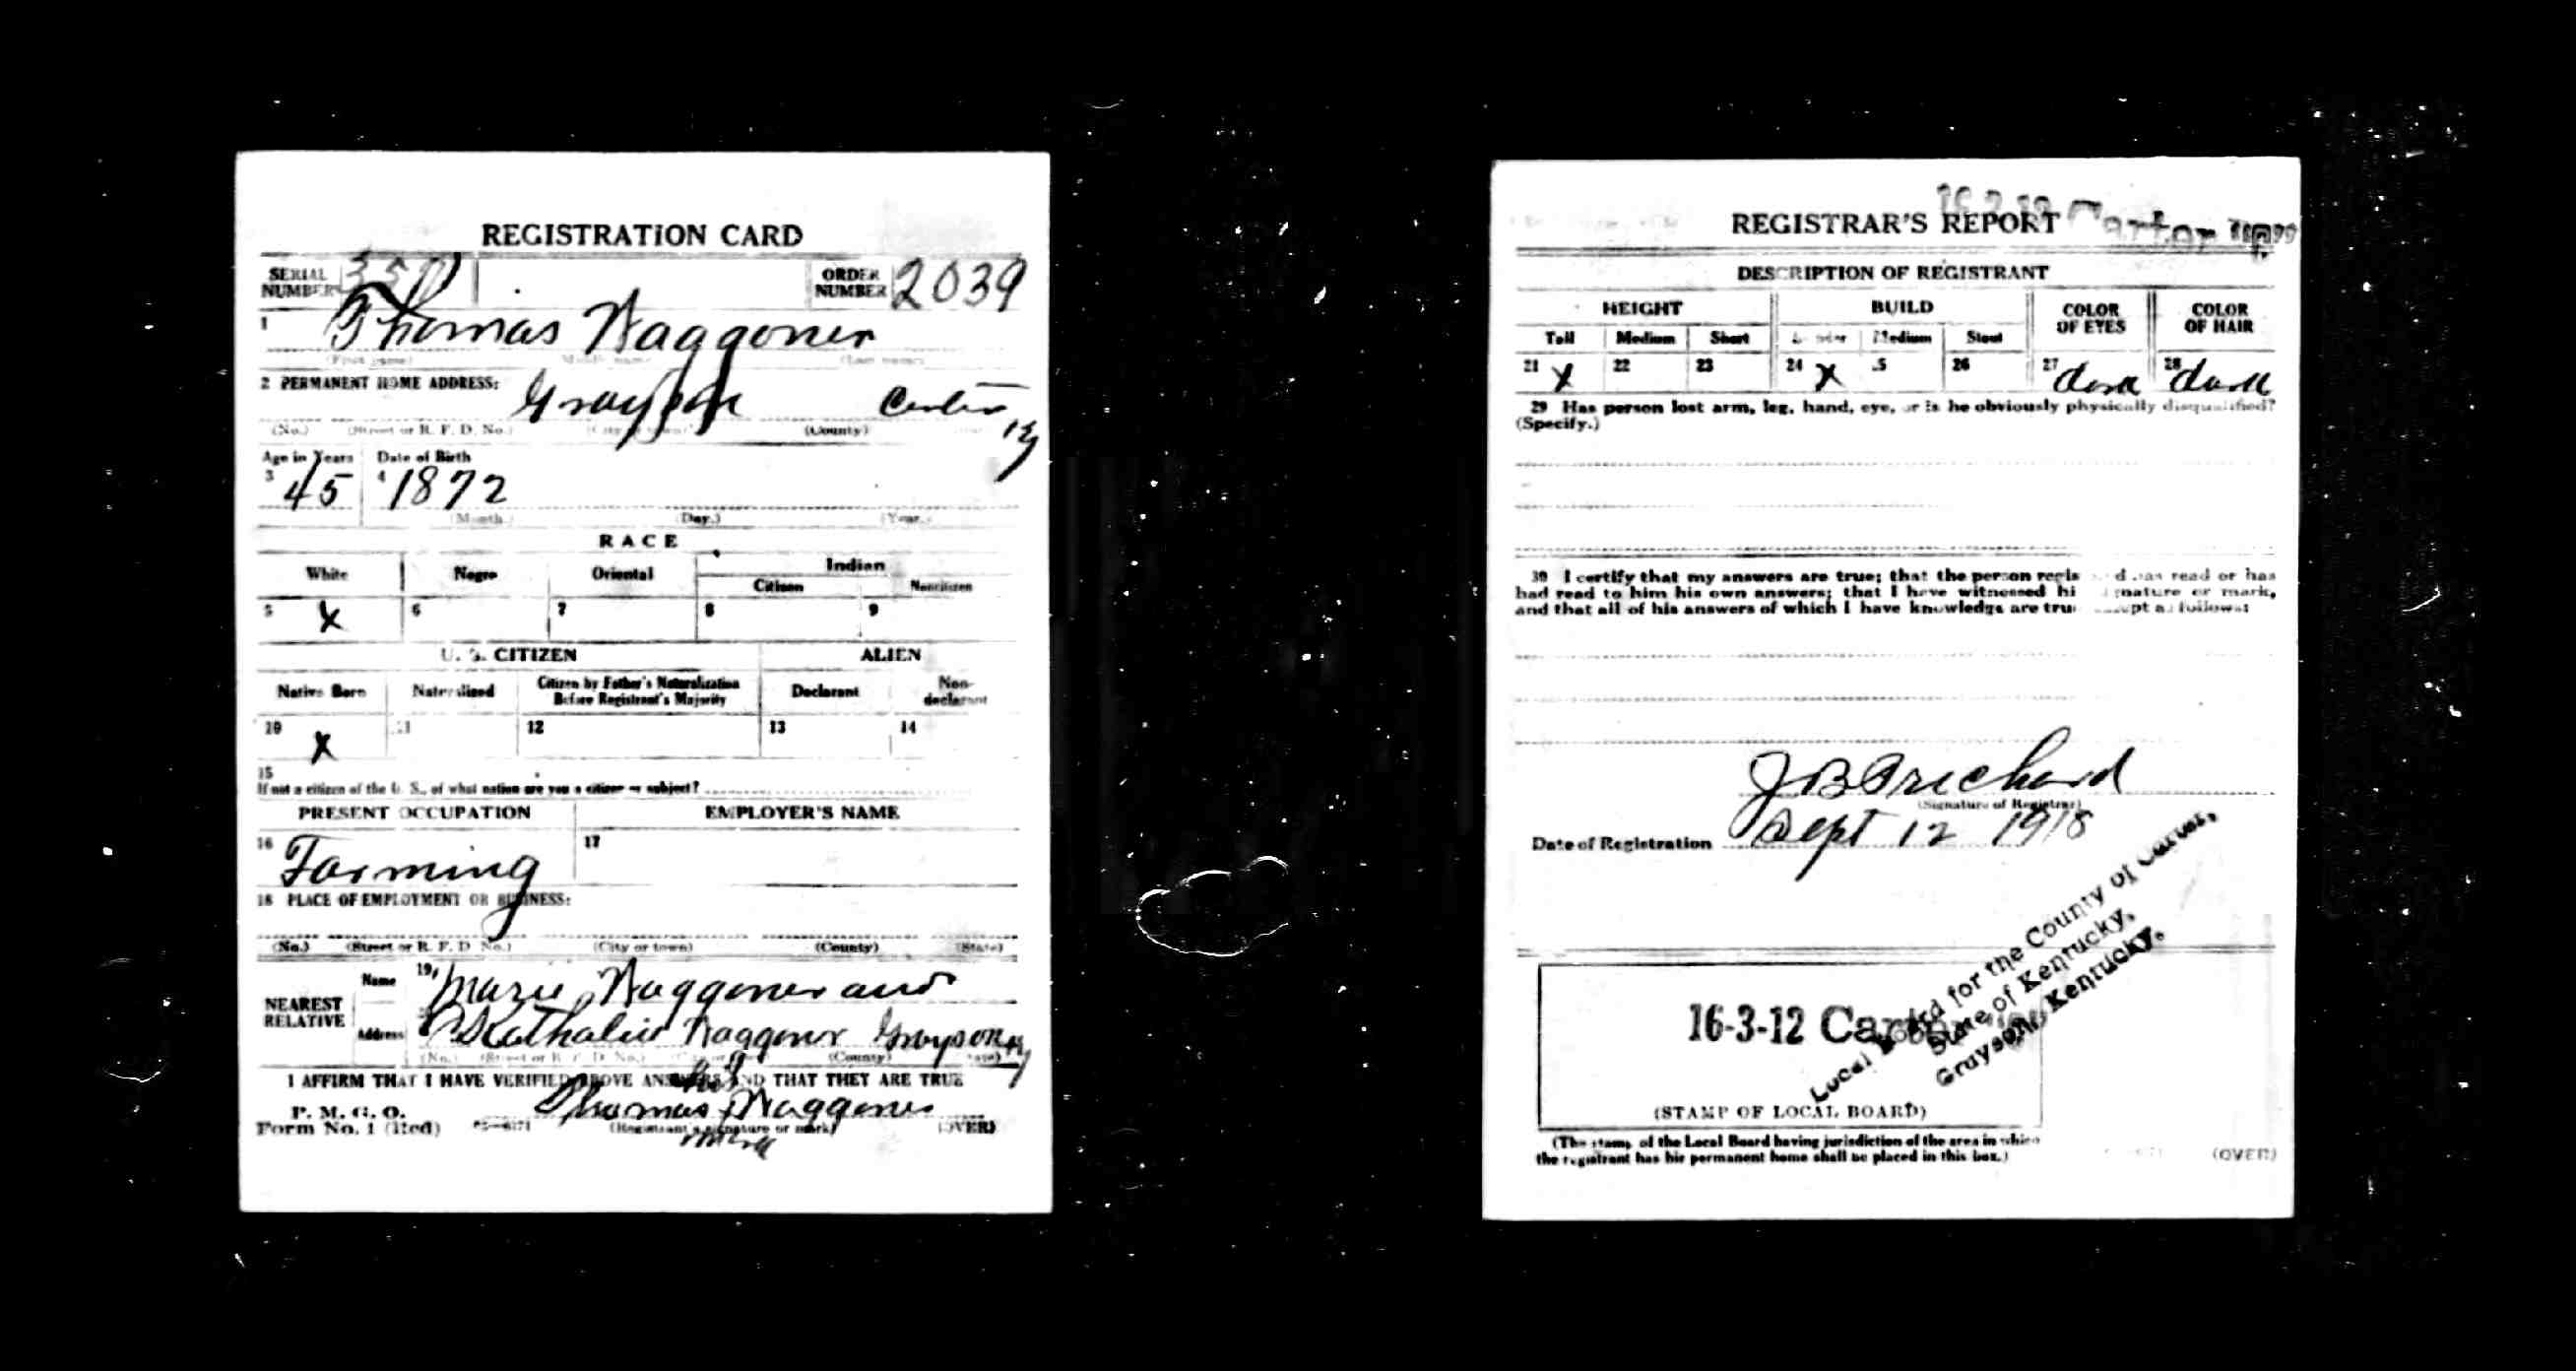 REGISTRATION CARD
SERIAL NUMBER
ORDER NUMBER 2039
1 Thomas Waggoner
(First name) (Middle name) (Last name)
2 PERMANENT HOME ADDRESS: Grayson Carter Ky
(No.) (Street or R. F. D. No.) (City or town) (County)
Age in Years Date of Birth
3 45 4 1872
(Month.) (Day.) (Year.)
RACE
White Negro Oriental Indian
Citizen Noncitizen
5 X 6 7 8 9
U. S. CITIZEN ALIEN
Native Born Naturalized Citizen by Father's Naturalization Before Registrant's Majority Declarant Non-declarant
10 X 11 12 13 14
15
If not a citizen of the U. S., of what nation are you a citizen or subject?
PRESENT OCCUPATION EMPLOYER'S NAME
16 Farming 17
18 PLACE OF EMPLOYMENT OR BUSINESS:
(No.) (Street or R. F. D. No.) (City or town) (County) (State)
NEAREST RELATIVE
Name 19 Waggoner and
Address Waggoner Grayson Ky
(No.) (Street or R. F. D. No.) (County) (State)
I AFFIRM THAT I HAVE VERIFIED ABOVE ANSWERS AND THAT THEY ARE TRUE
his
P. M. G. O.
Form No. 1 (Red) Thomas X Waggoner
(Registrant's signature or mark) (OVER)
mark
REGISTRAR'S REPORT
Carter
DESCRIPTION OF REGISTRANT
HEIGHT BUILD COLOR OF EYES COLOR OF HAIR
Tall Medium Short Slender Medium Stout
21 X 22 23 24 X 25 26 27 dark 28 dark
29 Has person lost arm, leg, hand, eye, or is he obviously physically disqualified?
(Specify.)
30 I certify that my answers are true; that the person regis d has read or has
had read to him his own answers; that I have witnessed hi gnature or mark,
and that all of his answers of which I have knowledge are tru except as follows:
J B Prichard
(Signature of Registrar)
Date of Registration Sept 12 1918
Local Board for the County of Carter,
State of Kentucky,
Grayson, Kentucky.
16-3-12 Carter
(STAMP OF LOCAL BOARD)
(The stamp of the Local Board having jurisdiction of the area in which
the registrant has his permanent home shall be placed in this box.)
(OVER)